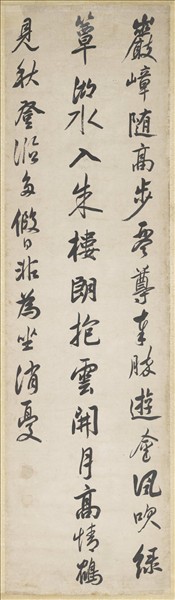 巖嶂随高步琴尊奉勝遊金風吹緑
簟湘水入朱樓朗抱雲開月高情鶴
見秋登臨多假日非為坐消憂